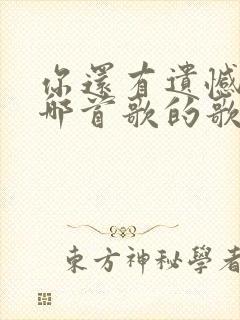 你還有遺憾
那首歌的歌
東方神秘學者